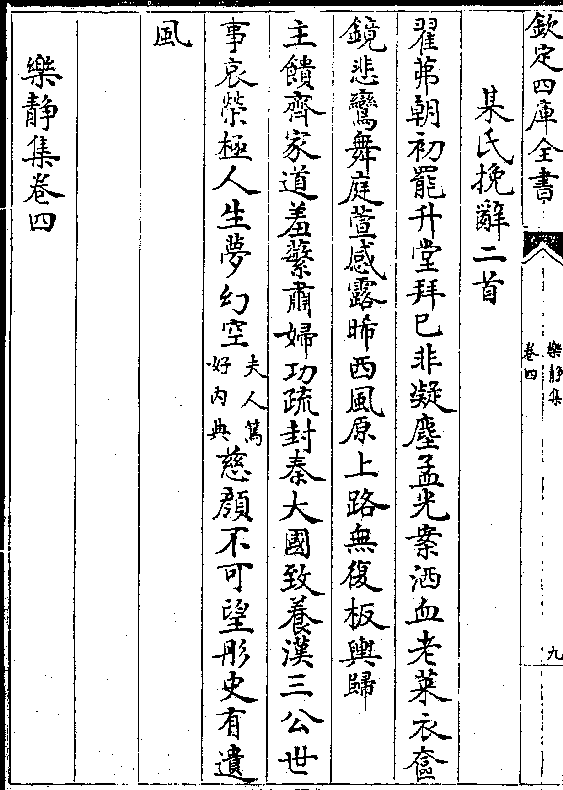 欽定四庫全書
樂静集
卷四
九
某氏挽辭二首
翟茀朝初罷升堂拜已非凝塵孟光案洒血老萊衣奩
鏡悲鸞舞庭萱感露晞西風原上路無復板輿歸
主饋齊家道羞蘩肅婦功疏封秦大國致養漢三公世
事哀榮極人生夢幻空夫人篤好内典慈顔不可望彤史有遺
風
樂静集卷四